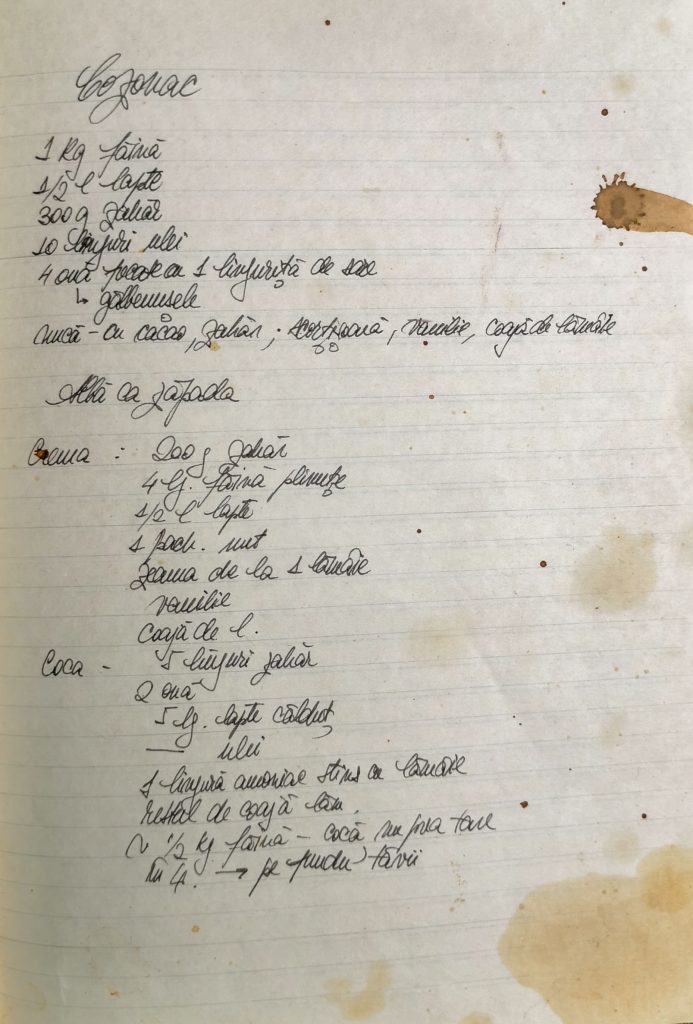 Cozonac
1 kg făină
1/2 l lapte
300 g zahăr
10 linguri ulei
4 ouă frecate cu 1 linguriță de sare
↳ gălbenușele
nucă - cu cacao, zahăr, scorțișoară, vanilie, coajă de lămâie
Albă ca zăpada
Crema : 200 g zahăr
4 lg. făină plinuțe
1/2 l lapte
1 pach. unt
zeama de la 1 lămâie
vanilie
coajă de l.
Coca - 5 linguri zahăr
2 ouă
5 lg. lapte călduț
— ulei
1 lingură amoniac stins cu lămâie
restul de coajă lăm.
~ 1/2 kg făină - cocă nu prea tare
în 4. → pe fundu' tăvii